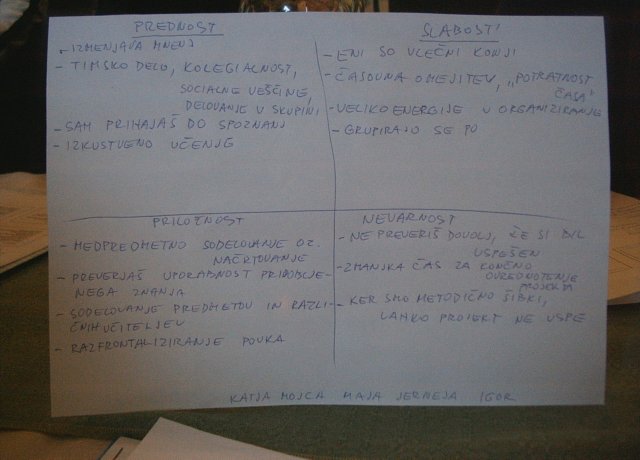 PREDNOST
- IZMENJAVA MNENJ
- TIMSKO DELO, KOLEGIALNOST,
SOCIALNE VEŠČINE,
DELOVANJE V SKUPINI
- SAM PRIHAJAŠ DO SPOZNANJ
- IZKUSTVENO UČENJE
SLABOSTI
- ENI SO VLEČNI KONJI
- ČASOVNA OMEJITEV, "POTRATNOST
ČASA"
- VELIKO ENERGIJE V ORGANIZIRANJE
- GRUPIRAJO SE PO
PRILOŽNOST
- MEDPREDMETNO SODELOVANJE OZ.
NAČRTOVANJE
- PREVERJAŠ UPORABNOST PRIDOBLJE-
NEGA ZNANJA
- SODELOVANJE PREDMETOV IN RAZLI-
ČNIH UČITELJEV
- RAZFRONTALIZIRANJE POUKA
NEVARNOST
- NE PREVERIŠ DOVOLJ, ČE SI BIL
USPEŠEN
- ZMANJKA ČAS ZA KONČNO
OVREDNOTENJE
PROJEKTA
- KER SMO METODIČNO ŠIBKI,
LAHKO PROJEKT NE USPE
KATJA MOJCA MAJA JERNEJA IGOR